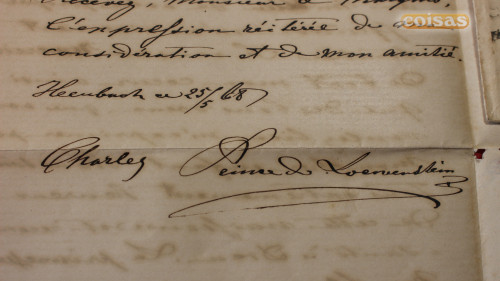 Recevez, Monsieur le
L'expression réitérée de
considération et de mon amitié.
Heubach ce 25/5 68
Charles Prince de Loewenstein
coisas